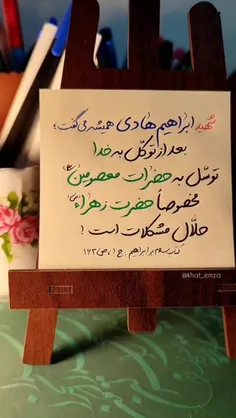 شهید ابراهیم هادی همیشه می‌گفت؛
بعد از توکّل به خدا
توسّل به حضرات معصومین (ع)
مخصوصاً حضرت زهراء (س)
حلّال مشکلات است !
کتاب سلام بر ابراهیم . ج ۱ ، ص ۱۲۳
@khat_emza